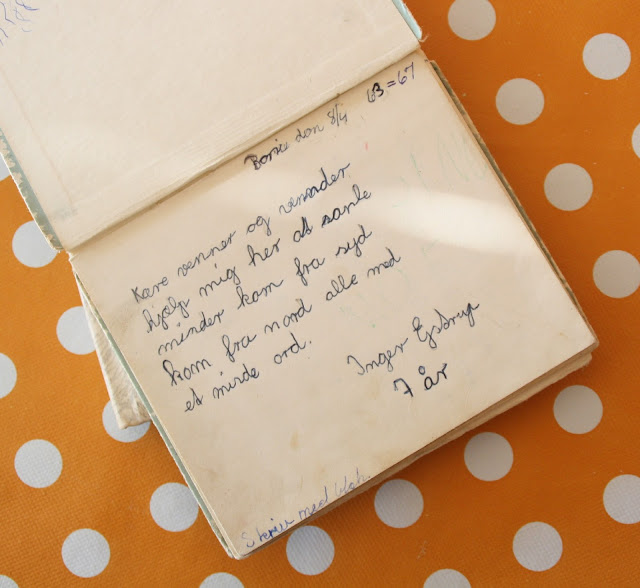 Borris den 8/4 63=67
Kære venner og veninder
hjælp mig her at samle
minder kom fra syd
kom fra nord alle med
et minde ord.
Inger Ejstrup
7 år
Skriv med blæk